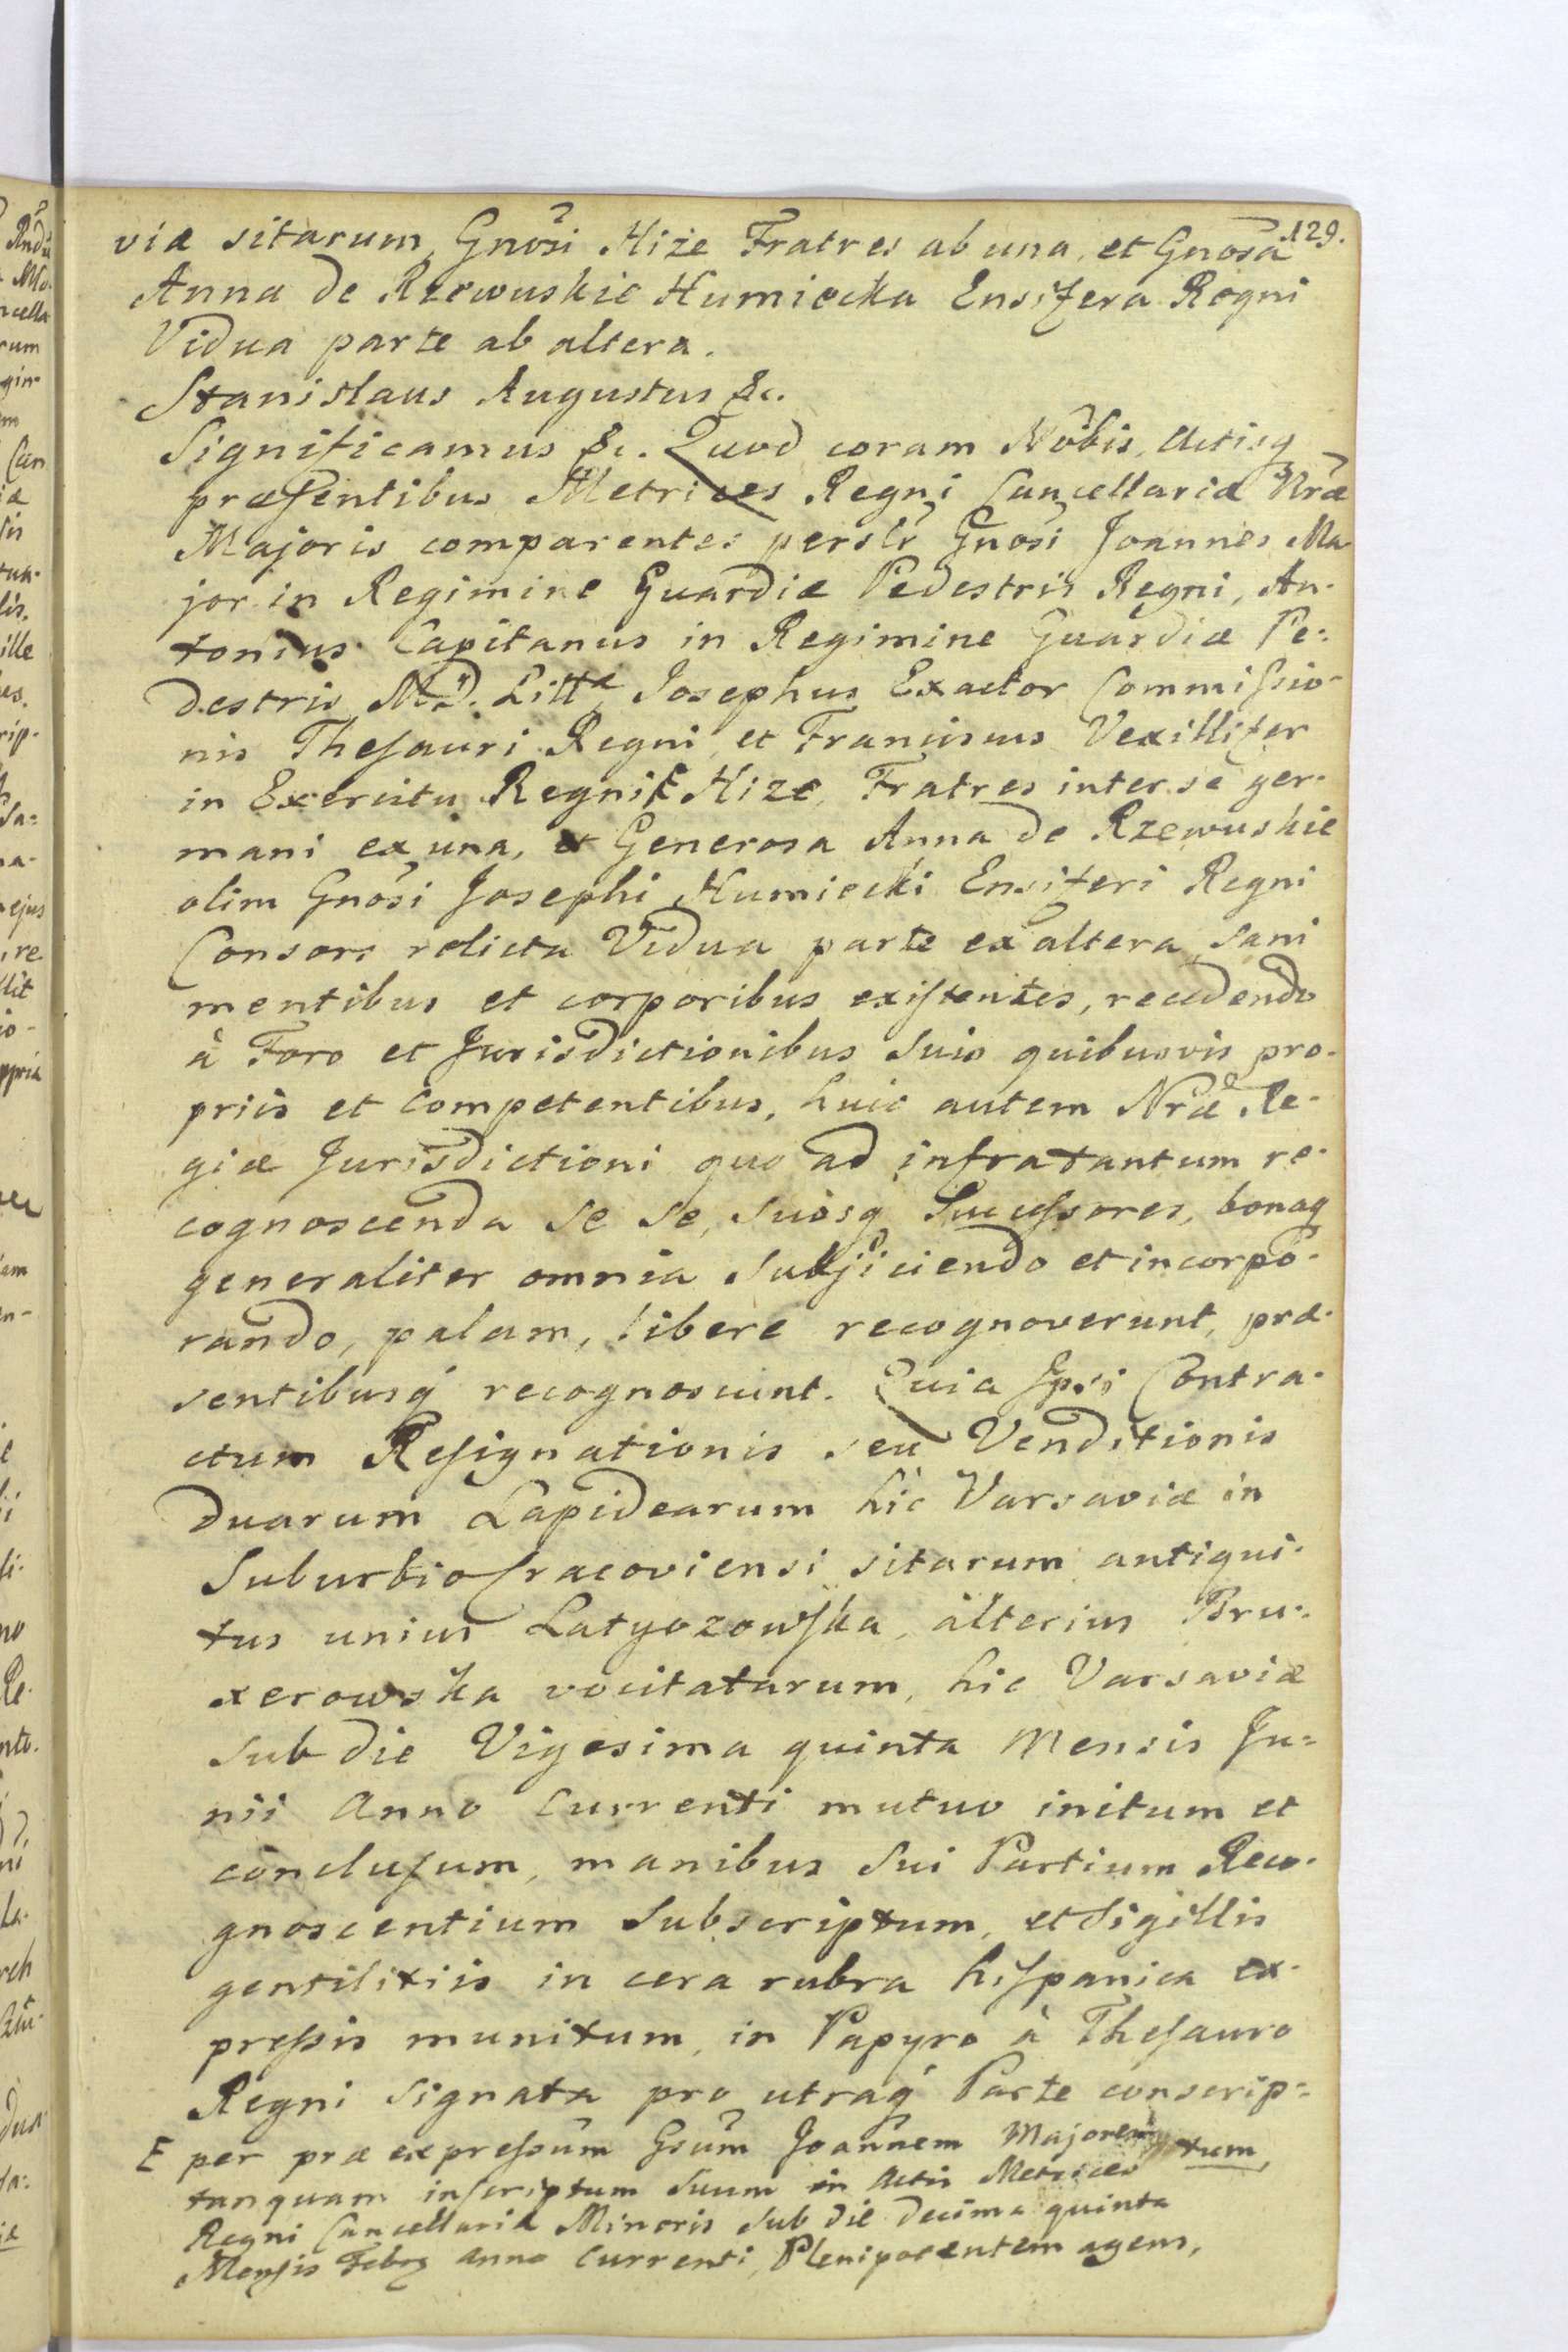 129.
viæ sitarum, Gnosi Hiże Fratres ab una, et Gnosa
Anna de Rzewuskie Humiecka Ensifera Regni
Vidua parte ab altera.
Stanislaus Augustus &c.
Significamus &c. Quod coram Nobis, Actisq
præsentibus Metrices Regni Cancellariæ Nræ
Majoris comparentes perslr Gnosi Joannes Ma
jor in Regimine Guardiæ Pedestris Regni, An-
tonius Capitanus in Regimine Guardiæ Pe-
destris M.D. Litt. Josephus Exactor Commissio-
nis Thesauri Regni, et Franciscus Vexillifer
in Exercitu Regni E Hize, Fratres inter se ger-
mani ex una, et Generosa Anna de Rzewuskie
olim Gnosi Josephi Humiecki Ensiferi Regni
Consors relicta Vidua parte ex altera, sani
mentibus et corporibus existentes, recedendo
à Foro et Jurisdictionibus suis quibusvis pro-
priis et competentibus, huic autem Nræ Re-
giæ Jurisdictioni quo ad infra tantum re-
cognoscenda se se, suosq Successores, bonaq
generaliter omnia subjiciendo et incorpo-
rando, palam, libere recognoverunt, præ-
sentibusq recognoscunt. Quia Ipsi Contra-
ctum Resignationis seu Venditionis
duarum Lapidearum hic Varsaviæ in
Suburbio Cracoviensi sitarum antiqui-
tus unius Latyozowska, alterius Bru-
xerowska vocitatarum, hic Varsaviæ
sub die Vigesima quinta Mensis Ju=
nii Anno Currenti mutuo initum et
conclusum, manibus sui Partium Reco-
gnoscentium subscriptum, et Sigillis
gentilitiis in cera rubra hispanica ex-
pressis munitum, in Papyro à Thesauro
Regni signata pro utraq Parte conscrip=
tum,
E per præexpressum Gsum Joannem Majorem
tanquam inscriptum suum in Actis Metrices
Regni Cancellariæ Minoris sub die decima quinta
Mensis Febr anno Currenti, Plenipotentem agens,